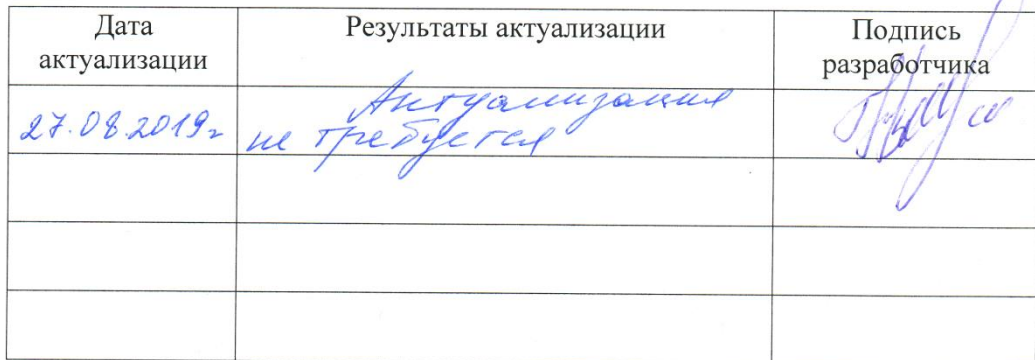 Дата
актуализации
Результаты актуализации
Подпись
разработчика
27.08.2019г
Актуализация
не требуется